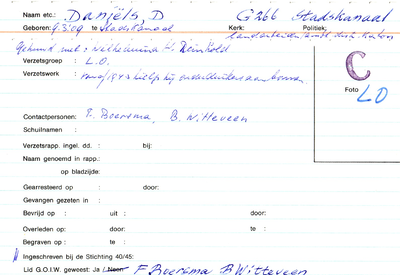 Naam etc.: Daniëls, D G266 Stadskanaal
Geboren: 9.3.09 te Stadskanaal Kerk: Politiek:
Gehuwd met: Wilhelmina H. Reinhold
Verzetsgroep : L.O.
Verzetswerk : vanaf 1943 hielp hij onderduikers aan
C
Foto
LO
Contactpersonen: F. Boersma, B. Witteveen
Schuilnaam :
Verzetsrapp. ingel. dd. : bij:
Naam genoemd in rapp.:
op bladzijde:
Gearresteerd op : door:
Gevangen gezeten in :
Bevrijd op : uit : door:
Overleden op: door: te :
Begraven op : te :
Ingeschreven bij de Stichting 40/45:
Lid G.O.I.W. geweest: Ja / Neen F Boersma B Witteveen